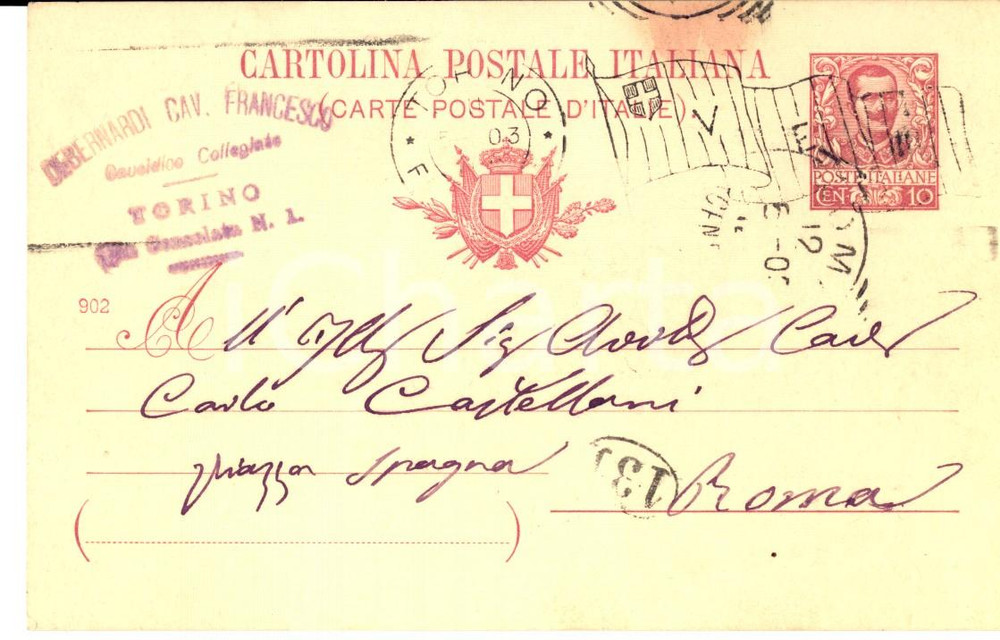 CARTOLINA POSTALE ITALIANA
(CARTE POSTALE D'ITALIE)
DEBERNARDI CAV. FRANCESCO
Causidico Collegiato
TORINO
Via Consolata N. 1.
TORINO
03
F
V
POSTE ITALIANE
CEN 10
ROMA
12
902
All' Ill Sig Cav
Carlo Castellani
piazza Spagna
131
Roma
iCharta